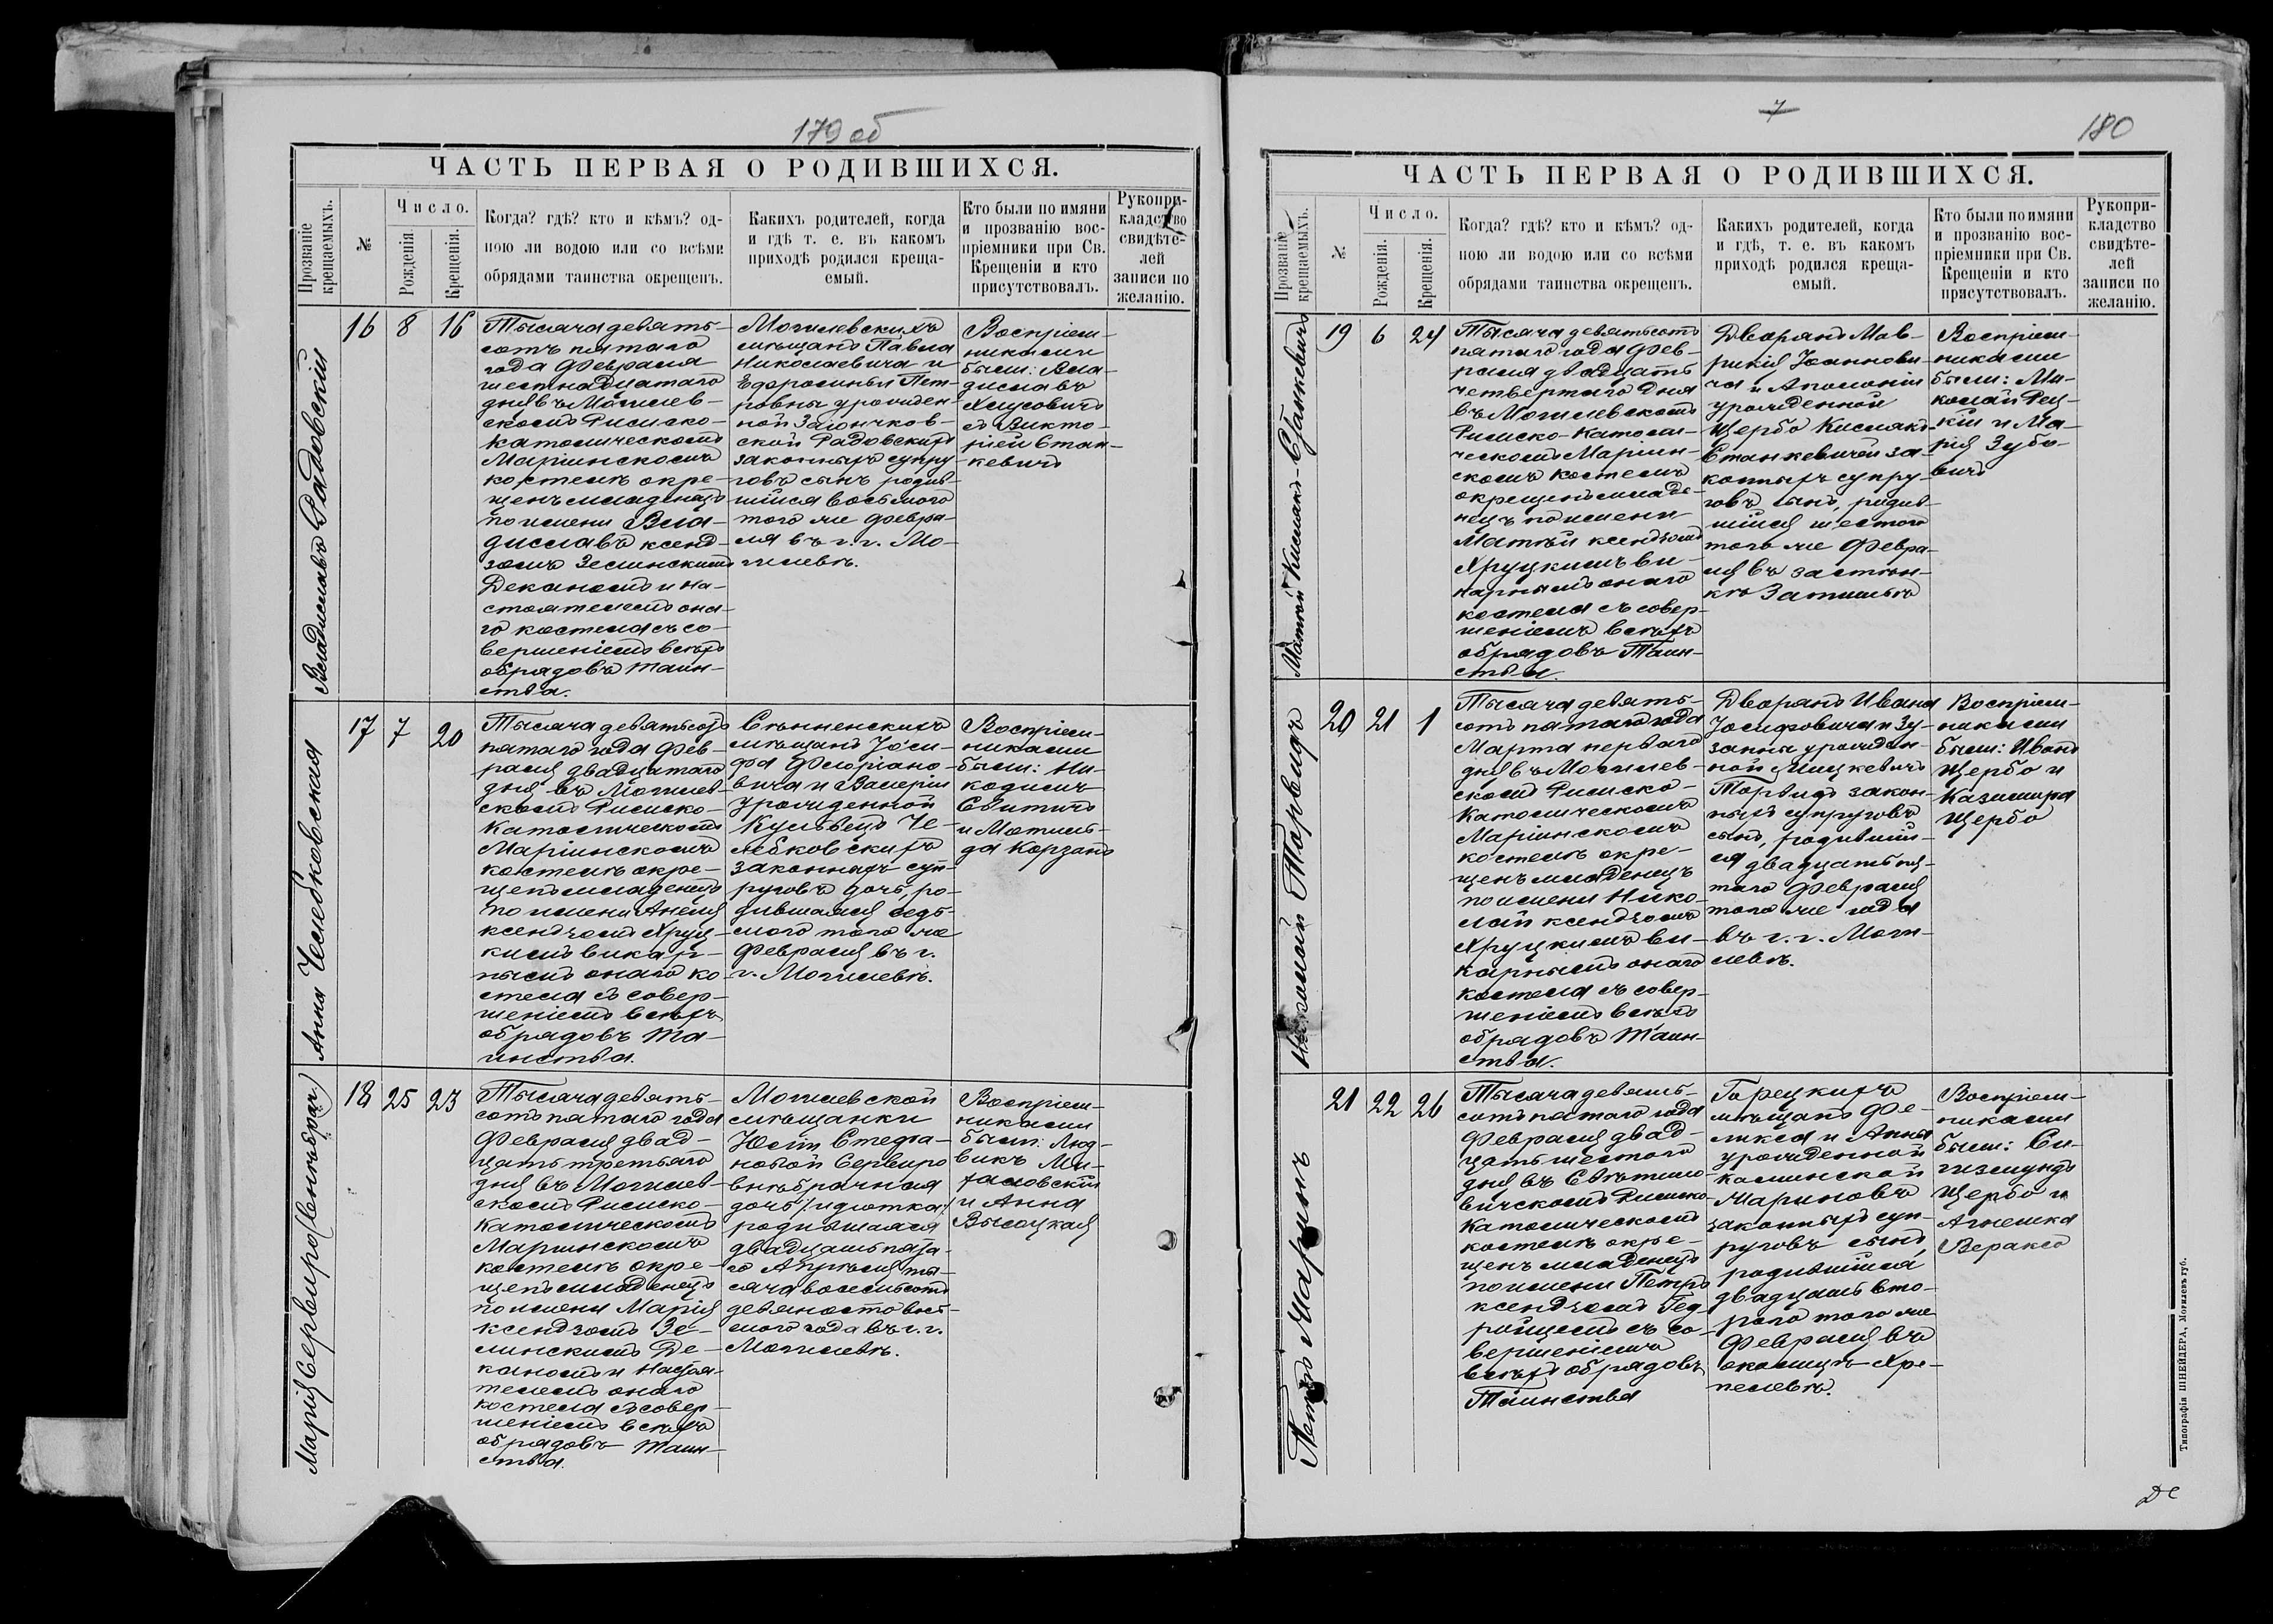 179 об
ЧАСТЬ ПЕРВАЯ О РОДИВШИХСЯ.
Прозваніе крещаемыхъ.
№
Число.
Рожденія.
Крещенія.
Когда? гдѣ? кто и кѣмъ? од-
ною ли водою или со всѣми
обрядами таинства окрещенъ.
Какихъ родителей, когда
и гдѣ т. е. въ какомъ
приходѣ родился креща-
емый.
Кто были по имяни
и прозванію вос-
пріемники при Св.
Крещеніи и кто
присутствовалъ.
Рукопри-
кладство
свидѣте-
лей
записи по
желанію.
Владиславъ Радовскій
16 8 16
Тысяча девять-
сотъ пятаго
года Февраля
шестнадцатаго
дня въ Могилев-
скомъ Римско-
Католическомъ
Маріинскомъ
костелѣ окре-
щенъ младенецъ
по имени Вла-
диславъ ксенд-
зомъ Зелинскимъ
Деканомъ и На-
стоятелемъ она-
го костела съ со-
вершеніемъ всѣхъ
обрядовъ Таин-
ства.
Могилевскихъ
мѣщанъ Павла
Николаевича и
Ефросиньи Пет-
ровны урожден-
ной Заіончков-
ской Радовскихъ
законныхъ супру-
говъ сынъ родив-
шійся восьмого
того же Февра-
ля въ г. г. Мо-
гилевѣ.
Воспріем-
никами
были: Вла-
диславъ
съ Викто-
ріей Стан-
кевичъ
Анна Челебковская
17 7 20
Тысяча девятьсотъ
пятаго года Фев-
раля двадцатаго
дня въ Могилев-
скомъ Римско-
Католическомъ
Маріинскомъ
костелѣ окре-
щенъ младенецъ
по имени Анеля
ксендзомъ Хруц-
кимъ викар-
нымъ онаго ко-
стела съ совер-
шеніемъ всѣхъ
обрядовъ Та-
инства.
Сѣнненскихъ
мѣщанъ Іоси-
фа Флоріано-
вича и Валеріи
урожденной
Кульвецъ Че-
лебковскихъ
законныхъ суп-
руговъ дочь, ро-
дившаяся седь-
мого того же
Февраля въ г.
г. Могилевѣ.
Воспріем-
никами
были: Ни-
кодимъ
Свитичъ
и Матиль-
да Корзанъ
Марія Сервиро (внѣбрач)
18 25 23
Тысяча девять-
сотъ пятаго года
Февраля двад-
цать третьяго
дня въ Могилев-
скомъ Римско-
Католическомъ
Маріинскомъ
костелѣ окре-
щенъ младенецъ
по имени Марія
ксендзомъ Зе-
линскимъ Де-
каномъ и Настоя-
телемъ онаго
костела съ совер-
шеніемъ всѣхъ
обрядовъ Таин-
ства.
Могилевской
мѣщанки
Юліи Стефа-
новой Сервиро
внѣбрачная
дочь /идіотка/
родившаяся
двадцать пята-
го Апрѣля ты-
сяча восемьсотъ
девяносто вось-
мого года въ г. г.
Могилевѣ.
Воспріем-
никами
были: Люд-
викъ Ми-
халовскій
и Анна
Высоцкая
7
180
ЧАСТЬ ПЕРВАЯ О РОДИВШИХСЯ.
Прозваніе крещаемыхъ.
№
Число.
Рожденія.
Крещенія.
Когда? гдѣ? кто и кѣмъ? од-
ною ли водою или со всѣми
обрядами таинства окрещенъ.
Какихъ родителей, когда
и гдѣ, т. е. въ какомъ
приходѣ родился креща-
емый.
Кто были по имяни
и прозванію вос-
пріемники при Св.
Крещеніи и кто
присутствовалъ.
Рукопри-
кладство
свидѣте-
лей
записи по
желанію.
Матѳей Кислякъ-Станкевичъ
19 6 24
Тысяча девятьсотъ
пятаго года Фев-
раля двадцать
четвертаго дня
въ Могилевскомъ
Римско-Католи-
ческомъ Маріин-
скомъ костелѣ
окрещенъ младе-
нецъ по имени
Матѳей ксендзомъ
Хруцкимъ ви-
карнымъ онаго
костела съ совер-
шеніемъ всѣхъ
обрядовъ Таин-
ства.
Дворянъ Мав-
рикія Іоаннови-
ча и Аполоніи
урожденной
Щербо Кислякъ-
Станкевичей за-
конныхъ супру-
говъ сынъ, родив-
шійся шестого
того же Февра-
ля въ застѣн-
кѣ Затишьѣ
Воспріем-
никами
были: Ни-
колай Рец-
кій и Ма-
рія Зубо-
вичъ
Николай Торвидъ
20 21 1
Тысяча девять-
сотъ пятаго года
Марта перваго
дня въ Могилев-
скомъ Римско-
Католическомъ
Маріинскомъ
костелѣ окре-
щенъ младенецъ
по имени Нико-
лай ксендзомъ
Хруцкимъ ви-
карнымъ онаго
костела съ совер-
шеніемъ всѣхъ
обрядовъ Таин-
ства.
Дворянъ Ивана
Іосифовича и Зу-
занны урожден-
ной Мицкевичъ
Торвидъ закон-
ныхъ супруговъ
сынъ, родивший-
ся двадцать пя-
таго Февраля
того же года
въ г. г. Моги-
левѣ.
Воспріем-
никами
были: Иванъ
Щербо и
Казимира
Щербо
Петръ Маринъ
21 22 26
Тысяча девять-
сотъ пятаго года
Февраля двад-
цать шестого
дня въ Свѣтило-
вичскомъ Римско-
Католическомъ
костелѣ окре-
щенъ младенецъ
по имени Петръ
ксендзомъ Гед-
ройцемъ съ со-
вершеніемъ
всѣхъ обрядовъ
Таинства
Горецкихъ
мѣщанъ Фе-
ликса и Анны
урожденной
Калинской
Мариновъ
законныхъ суп-
руговъ сынъ,
родившійся
двадцать вто-
рого того же
Февраля въ
околицѣ Хре-
пелевѣ.
Воспріем-
никами
были: Си-
гизмундъ
Щербо и
Агнешка
Вераксо
Типографія ШНЕЙДЕРА, Могилевъ губ.